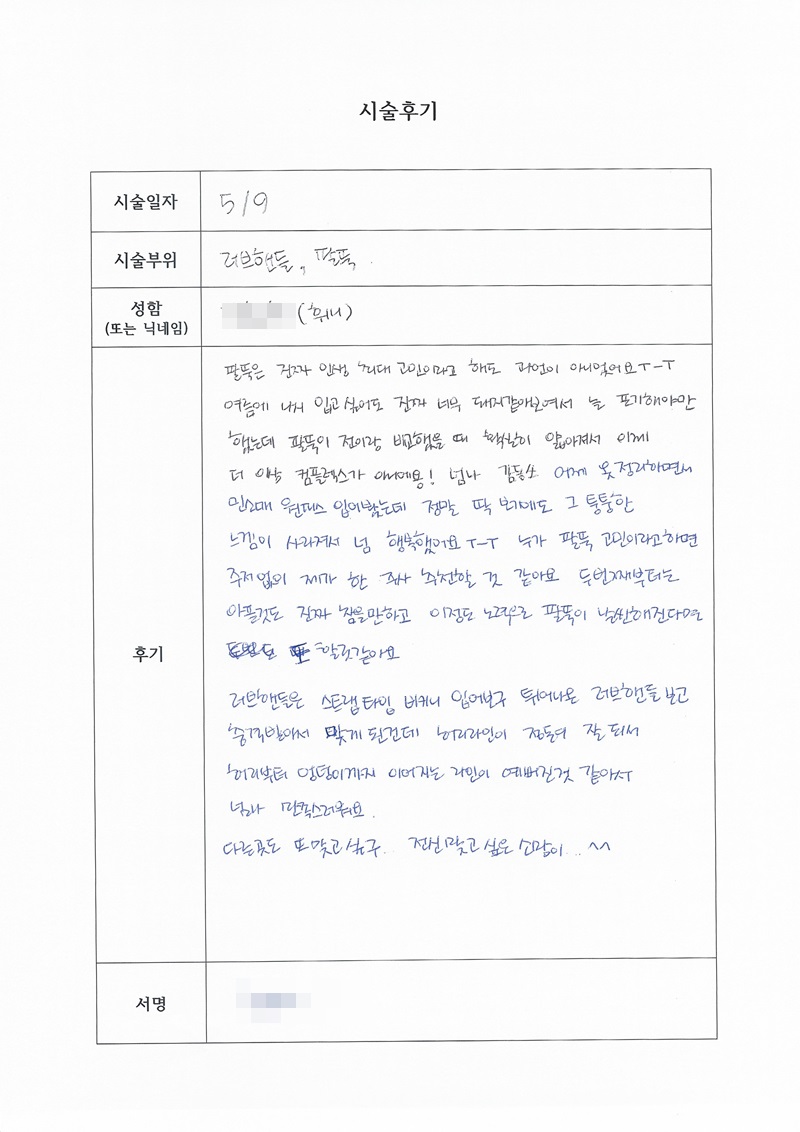 시술후기
시술일자 5/9
시술부위 러브핸들, 팔뚝.
성함
(또는 닉네임) (훠니)
후기
팔뚝은 진짜 인생 최대 고민이라고 해도 과언이 아니었어요ㅜ-ㅜ
여름에 나시 입고 싶어도 진짜 너무 돼지같아보여서 늘 포기해야만
했는데 팔뚝이 전이랑 비교했을 때 확실히 얇아져서 이제
더 이상 컴플렉스가 아니예용! 넘나 감동쓰 어제 옷정리하면서
민소매 원피스 입어봤는데 정말 딱 보기에도 그 퉁퉁한
느낌이 사라져서 넘 행복했어요ㅜ-ㅜ 누가 팔뚝 고민이라고하면
주저없이 제가 한 주사 추천할 것 같아요 두번째부터는
아픈것도 진짜 참을만하고 이정도 노력으로 팔뚝이 날씬해진다면
또 할것같아요
러브핸들은 스트랩타입 비키니 입어보구 튀어나온 러브핸들 보고
충격받아서 맞게 된건데 허리라인이 정돈이 잘 되서
허리부터 엉덩이까지 이어지는 라인이 예뻐진것 같아서
넘나 만족스러워요.
다른곳도 또 맞고 싶구.. 전신 맞고 싶은 심정이... ^^
서명